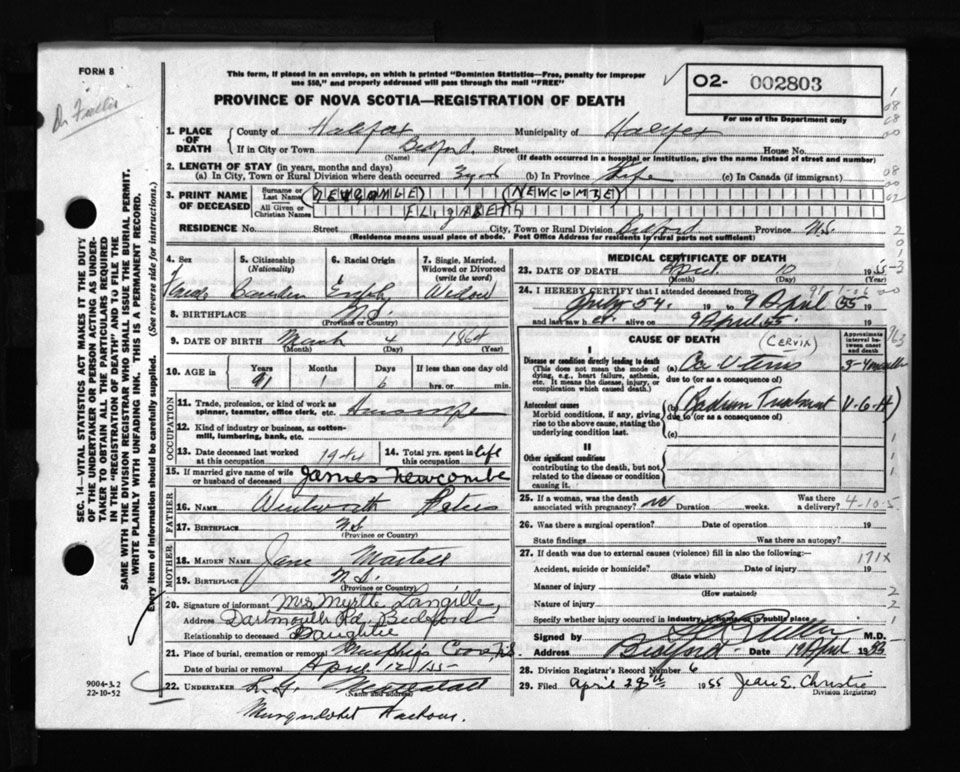 FORM 8
This form, if placed in an envelope, on which is printed "Dominion Statistics—Free, penalty for improper
use $50," and properly addressed will pass through the mail "FREE"
PROVINCE OF NOVA SCOTIA—REGISTRATION OF DEATH
O2- 002803
For use of the Department only
1. PLACE OF DEATH County of Halifax Municipality of Halifax
If in City or Town Bedford Street House No.
(Name) (If death occurred in a hospital or institution, give the name instead of street and number)
2. LENGTH OF STAY (in years, months and days)
(a) In City, Town or Rural Division where death occurred (b) In Province Life (c) In Canada (if immigrant)
3. PRINT NAME OF DECEASED Surname or Last Name NEWCOMBE (NEWCOMBE)
All Given or Christian Names ELIZABETH
RESIDENCE No. Street City, Town or Rural Division Bedford Province N.S.
(Residence means usual place of abode. Post Office Address for residents in rural parts not sufficient)
4. Sex 5. Citizenship (Nationality) 6. Racial Origin 7. Single, Married, Widowed or Divorced (write the word)
Widow
8. BIRTHPLACE N.S.
(Province or Country)
9. DATE OF BIRTH March 4 1864
(Month) (Day) (Year)
10. AGE in Years Months Days If less than one day
91 1 6 hrs. or min.
OCCUPATION
11. Trade, profession, or kind of work as
spinner, teamster, office clerk, etc.
12. Kind of industry or business, as cotton-
mill, lumbering, bank, etc.
13. Date deceased last worked
at this occupation 1944
14. Total yrs. spent in
this occupation life
15. If married give name of wife
or husband of deceased James Newcombe
FATHER
16. Name Wentworth Peters
17. Birthplace N.S.
(Province or Country)
MOTHER
18. MAIDEN NAME Jane Martell
19. BIRTHPLACE N.S.
(Province or Country)
20. Signature of informant Mrs Myrtle Langille
Address Dartmouth Rd, Bedford
Relationship to deceased Daughter
21. Place of burial, cremation or removal Murphys Cove N.S.
Date of burial or removal April 12/55
22. UNDERTAKER L.G.
(Name and address)
Musquodoboit Harbour.
9004-3.2
22-10-52
SEC. 14—VITAL STATISTICS ACT MAKES IT THE DUTY
OF THE UNDERTAKER OR PERSON ACTING AS UNDER-
TAKER TO OBTAIN ALL THE PARTICULARS REQUIRED
IN THE "REGISTRATION OF DEATH" AND TO FILE THE
SAME WITH THE DIVISION REGISTRAR WHO SHALL ISSUE THE BURIAL PERMIT.
WRITE PLAINLY WITH UNFADING INK. THIS IS A PERMANENT RECORD.
Every item of information should be carefully supplied. (See reverse side for instructions.)
MEDICAL CERTIFICATE OF DEATH
23. DATE OF DEATH April 10 1955
(Month) (Day) (Year)
24. I HEREBY CERTIFY that I attended deceased from:
July 54. 19 to 9 April 1955
and last saw her alive on 9 April 55.
CAUSE OF DEATH
Approximate interval between onset and death
I
Disease or condition directly leading to death
(This does not mean the mode of
dying, e.g., heart failure, asthenia,
etc. It means the disease, injury, or
complication which caused death.)
(a) Ca Uterus (CERVIX)
due to (or as a consequence of)
Antecedent causes
Morbid conditions, if any, giving
rise to the above cause, stating the
underlying condition last.
(b) (Radium Treatment V.G.H)
due to (or as a consequence of)
(c)
II
Other significant conditions
contributing to the death, but not
related to the disease or condition
causing it.
25. If a woman, was the death
associated with pregnancy? no Duration weeks. Was there
a delivery?
4-10-5
26. Was there a surgical operation? Date of operation 19
State findings Was there an autopsy?
27. If death was due to external causes (violence) fill in also the following:—
171X
Accident, suicide or homicide? Date of injury 19
(State which)
Manner of injury
(How sustained)
Nature of injury
Specify whether injury occurred in industry, in home, or in public place
Signed by M.D.
Address Bedford Date 19 April 1955
28. Division Registrar's Record Number 6
29. Filed April 29th 1955 Jean E. Christie
Division Registrar